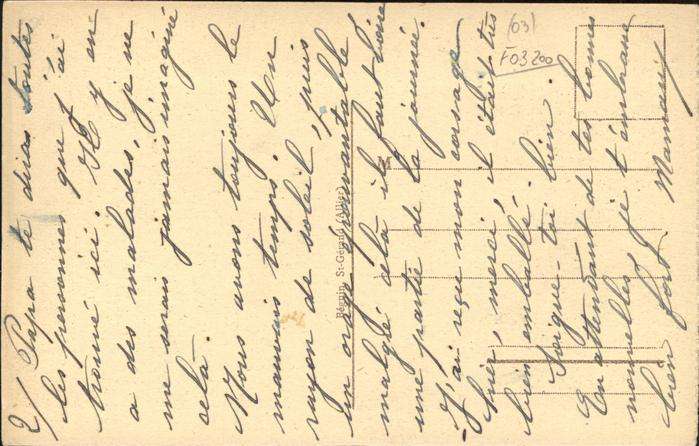 2/ Papa te diras toutes
les personnes que j'ai
trouvé ici. Il y en
a des malades, je ne
me serais jamais imaginé
celà.
Nous avons toujours le
mauvais temps. Un
rayon de soleil, puis
un orage épouvantable
malgré celà il faut boire
une partie de la journée.
J'ai reçu mon corsage
hier, merci, il était très
bien emballé.
Soigne-toi bien.
En attendant de tes bonnes
nouvelles je t'embrasse
bien fort. Maman
Béguin, St-Gérand (Allier)
(03)
F03200